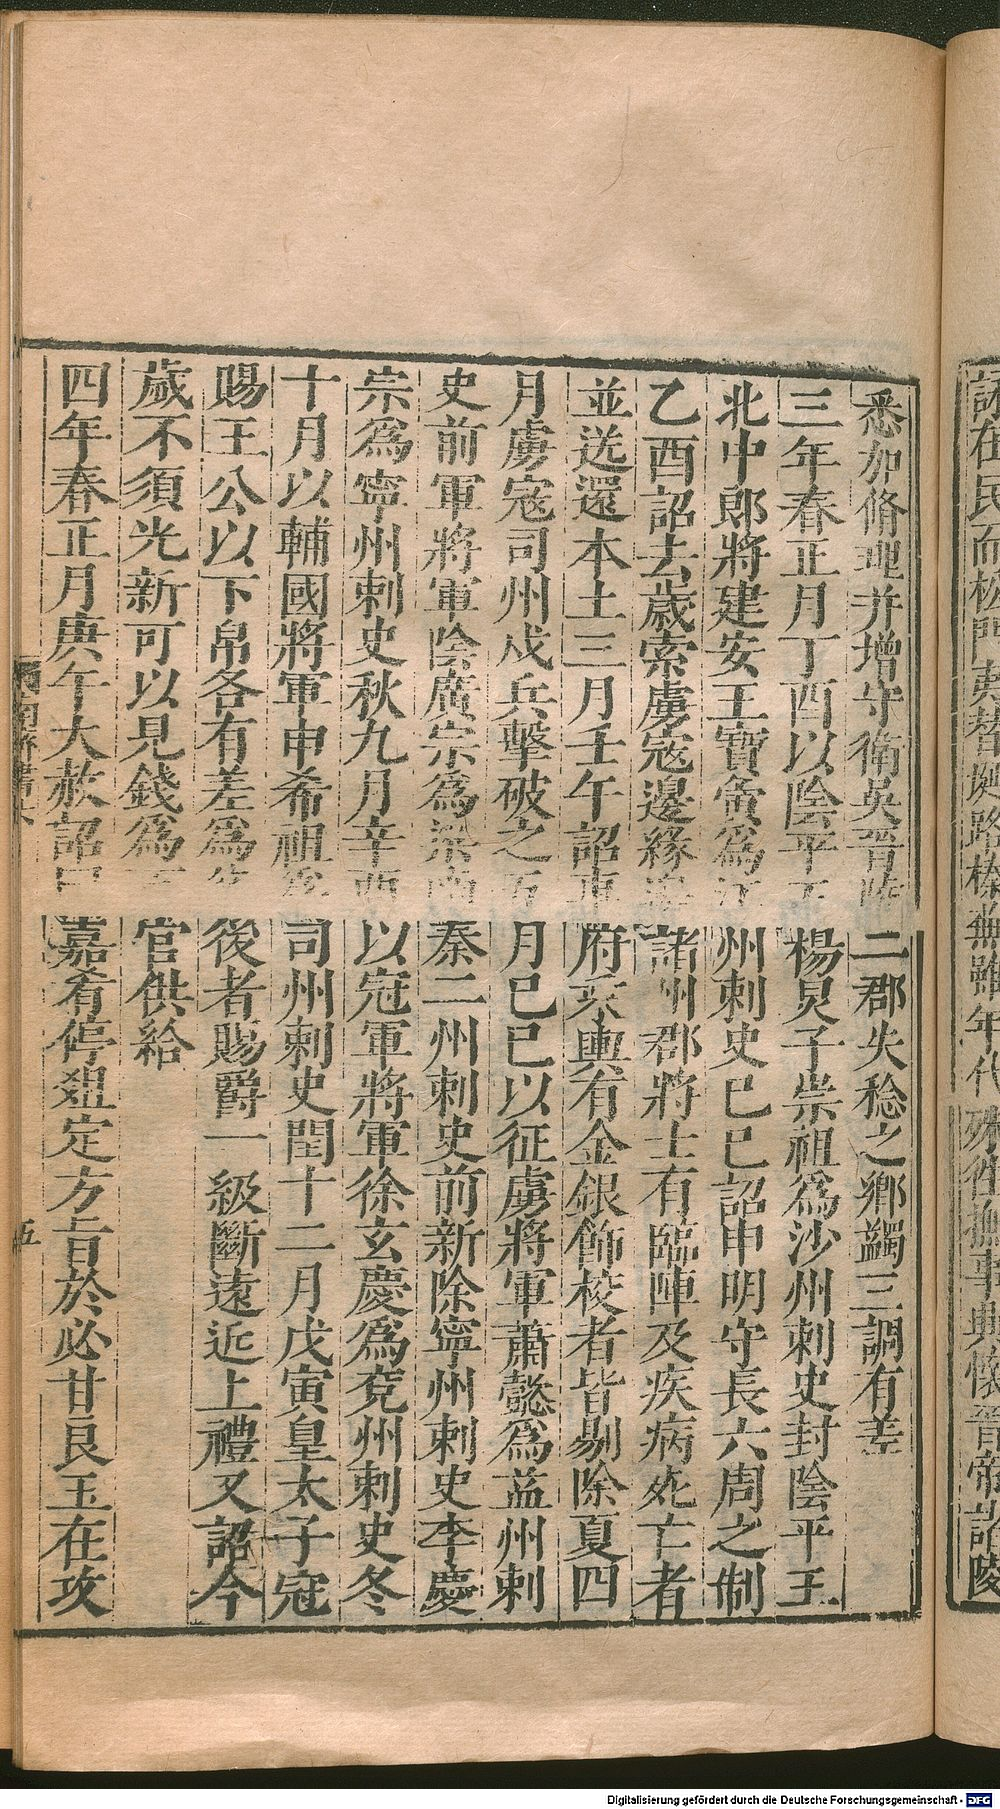 悉加脩理并增守衛吳晉陵二郡失稔之鄉蠲三調有差
三年春正月丁酉以陰平王楊炅子崇祖爲沙州刺史封陰平王
北中郎將建安王寶寅爲江州刺史己巳詔申明守長六周之制
乙酉詔去歲索虜寇邊緣邊諸州郡將士有臨陣及疾病死亡者
並送還本土三月壬午詔車府乘輿有金銀飾校者皆剔除夏四
月虜寇司州戍兵擊破之五月己巳以征虜將軍蕭懿爲益州刺
史前軍將軍陰廣宗爲梁南秦二州刺史前新除寧州刺史李慶
宗爲寧州刺史秋九月辛酉以冠軍將軍徐玄慶爲兗州刺史冬
十月以輔國將軍申希祖爲司州刺史閏十二月戊寅皇太子冠
賜王公以下帛各有差爲父後者賜爵一級斷遠近上禮又詔今
歲不須光新可以見錢爲百官供給
四年春正月庚午大赦詔曰嘉肴停俎定方旨於必甘良玉在攻
南齊書六
五
Digitalisierung gefördert durch die Deutsche Forschungsgemeinschaft - DFG